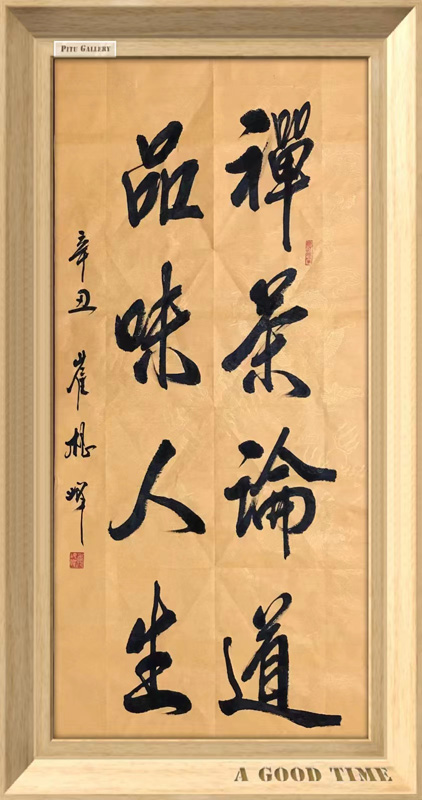 PITU GALLERY
禪茶論道
品味人生
辛丑 崔
A GOOD TIME